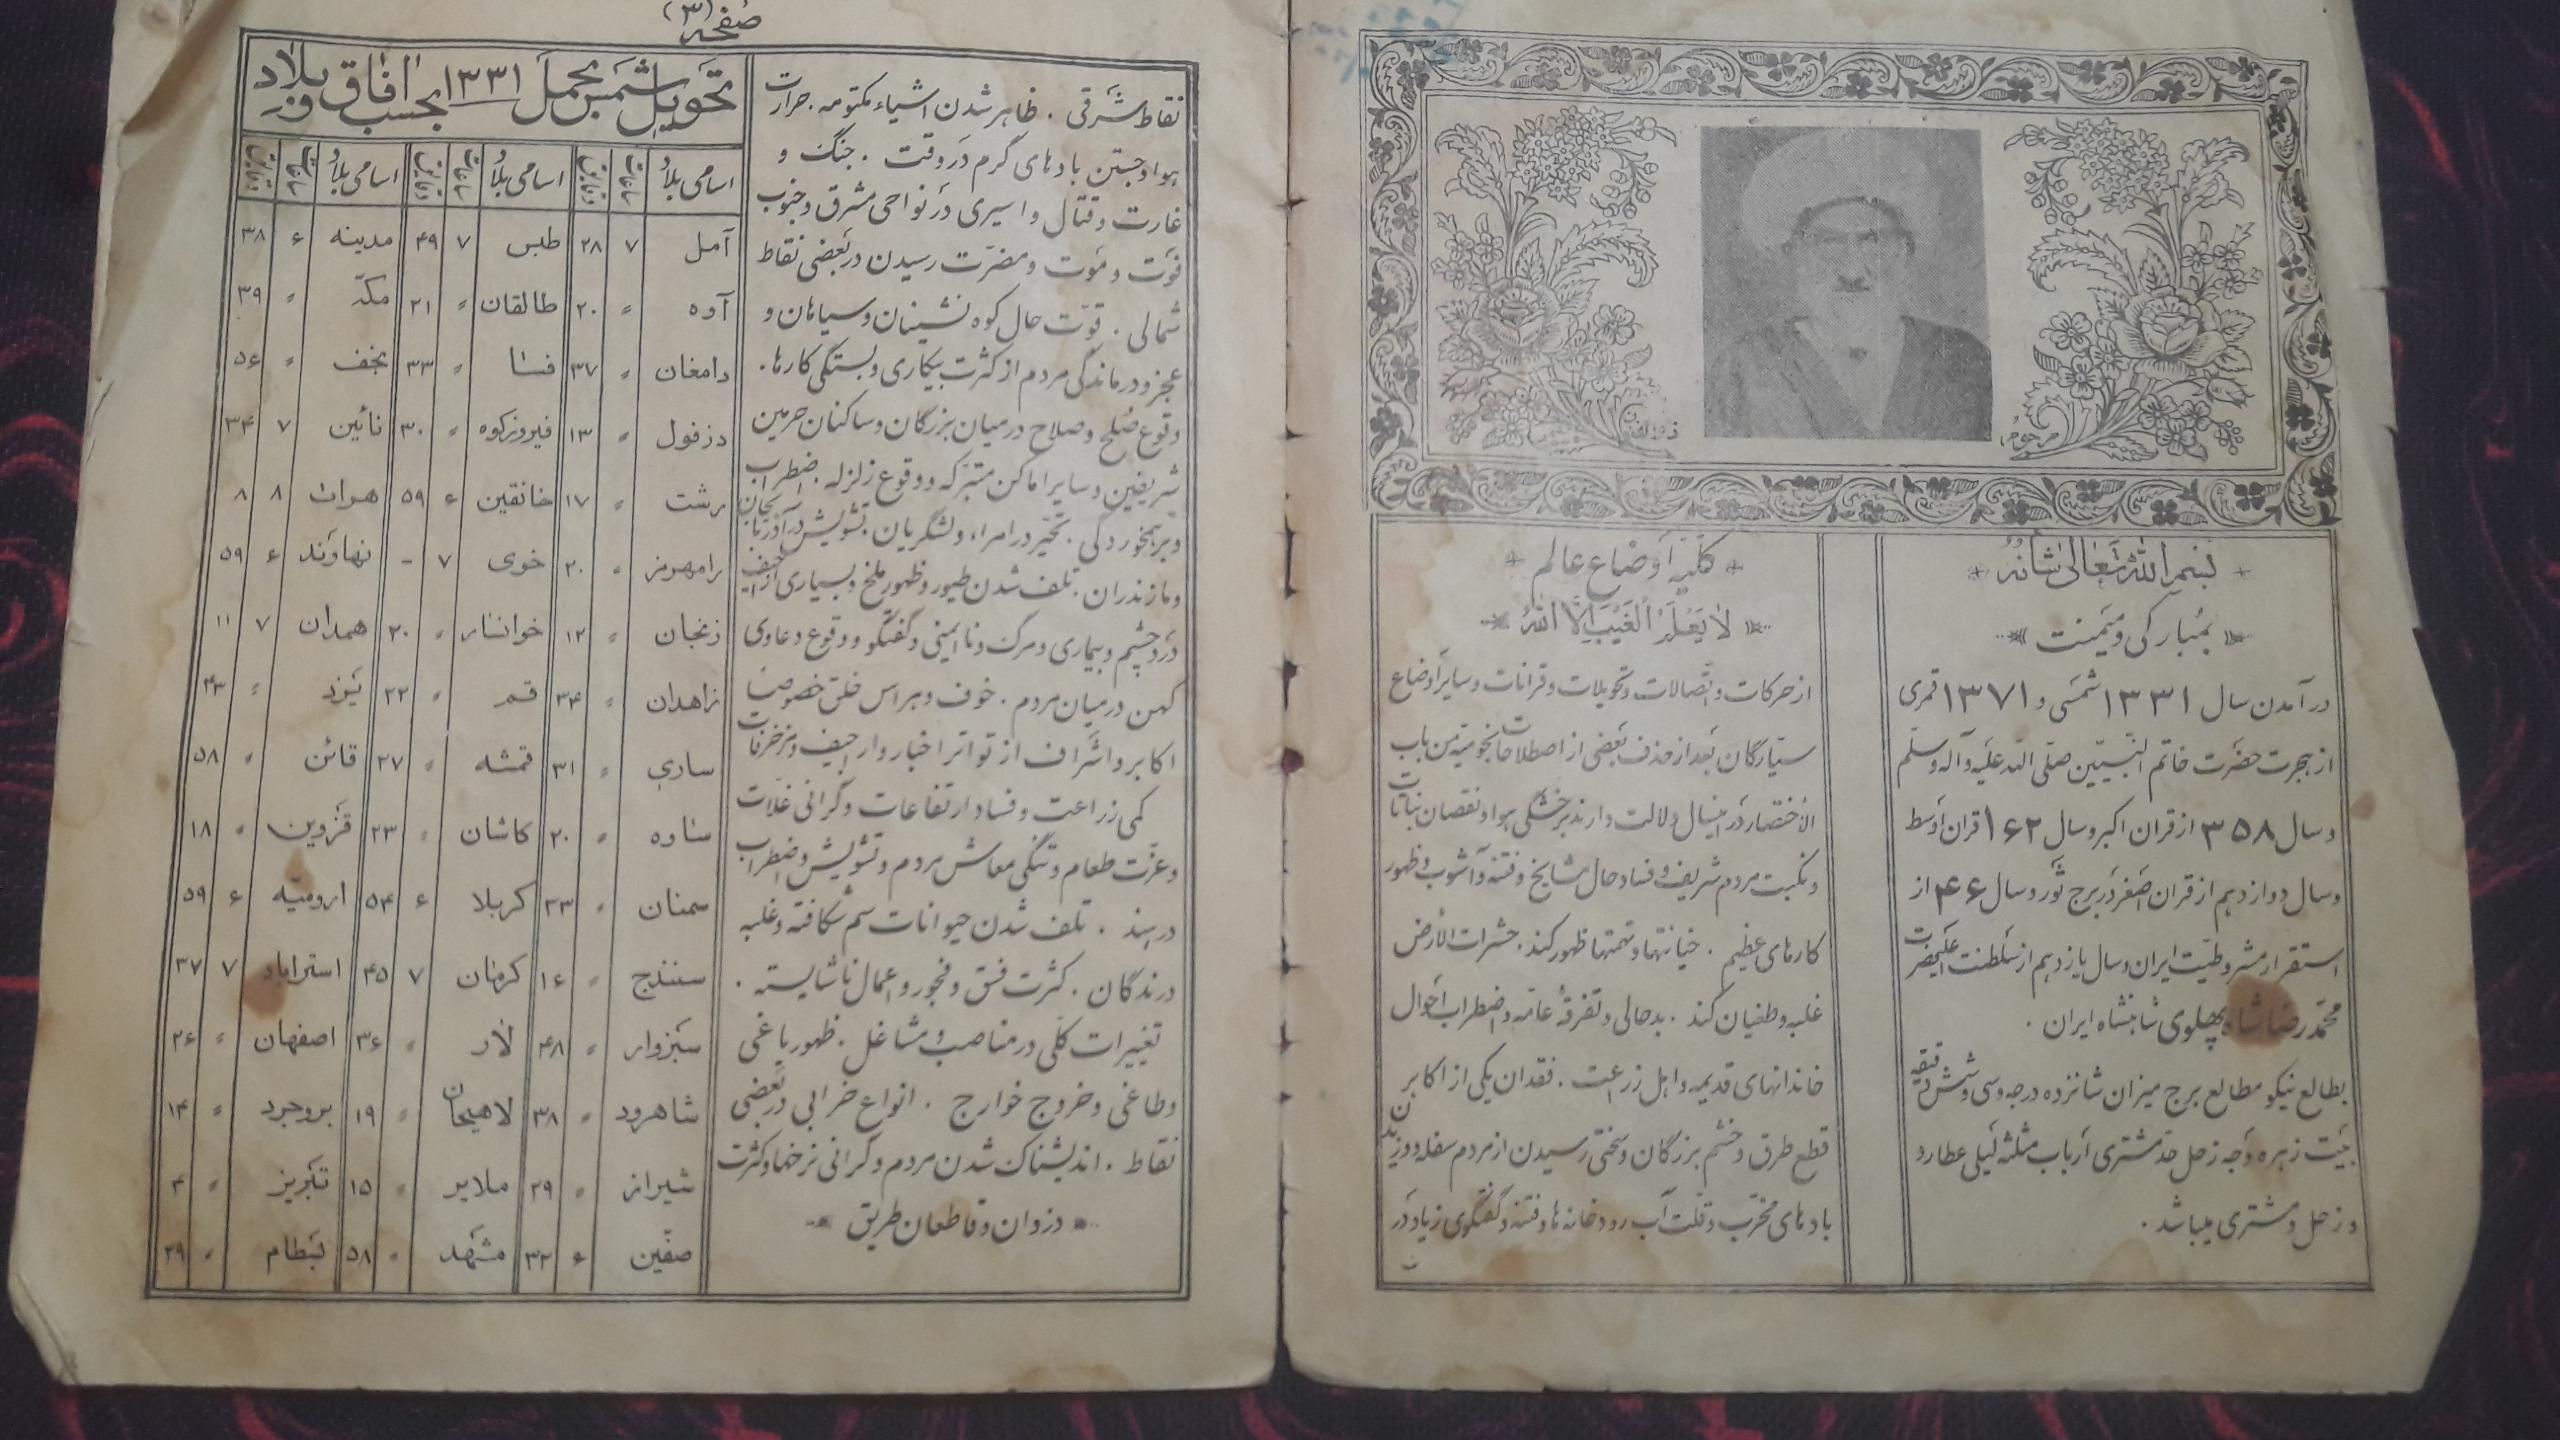 بسم الله تعالی شانه
بمبارکی و میمنت
در آمدن سال ۱۳۳۱ شمسی و ۱۳۷۱ قمری
از هجرت حضرت خاتم النبیین صلی الله علیه و آله وسلم
و سال ۳۵۸ از قران اکبر و سال ۱۶۲ قران اوسط
و سال دوازدهم از قران اصغر در برج ثور و سال ۴۶ از
استقرار مشروطیت ایران و سال یازدهم از سلطنت اعلیحضرت
محمد رضا شاه پهلوی شاهنشاه ایران .
بطالع نیکو مطالع برج میزان شانزده درجه و سی و شش دقیقه
بیت زهره وجه زحل حد مشتری ارباب مثلثه لیلی عطارد
و زحل و مشتری میباشد .
کلیه اوضاع عالم
لا یعلم الغیب الا الله
از حرکات و اتصالات و تحویلات و قرانات و سایر اوضاع
سیارگان بعد از حذف بعضی از اصطلاحات نجومیه من باب
الاختصار در اینسال دلالت دارند بر خشکی هوا و نقصان نباتات
و نکبت مردم شریف و فساد حال مشایخ و فتنه و آشوب و ظهور
کارهای عظیم . خیانتها و تهمتها ظهور کند . حشرات الأرض
غلبه و طغیان کند . بدحالی و تفرقه عامه و اضطراب احوال
خاندانهای قدیمه و اهل زراعت . فقدان یکی از اکابر
قطع طرق و خشم بزرگان و سختی رسیدن از مردم سفله و وزیدن
بادهای مخرب و قلت آب رودخانه ها و فتنه و گفتگوی زیاد در
صفحه (۳)
نقاط شرقی . ظاهر شدن اشیاء مکتومه . حرارت
هوا و جستن بادهای گرم در وقت . جنگ و
غارت و قتال و اسیری در نواحی مشرق و جنوب
فوت و موت و مضرت رسیدن در بعضی نقاط
شمالی . قوت حال کوه نشینان و سیاهان و
عجز و درماندگی مردم از کثرت بیکاری و بستگی کارها .
وقوع صلح و صلاح در میان بزرگان و ساکنان حرمین
شریفین و سایر اماکن متبرکه و وقوع زلزله . اضطراب
و برهمخوردگی . تحیر در امراء و لشگریان . تشویش در آذربایجان
و مازندران . تلف شدن طیور و ظهور ملخ و بسیاری اراجیف
درد چشم و بیماری و مرگ و نا ایمنی و گفتگو و وقوع دعاوی
کهن در میان مردم . خوف و هراس خلق خصوصا
اکابر و اشراف از تواتر اخبار و اراجیف و مزخرفات
کمی زراعت و فساد ارتفاعات و گرانی غلات
و عزت طعام و تنگی معاش مردم و تشویش و اضطراب
در هند . تلف شدن حیوانات سم شکافته و غلبه
درندگان . کثرت فسق و فجور و اعمال ناشایسته .
تغییرات کلی در مناصب و مشاغل . ظهور یاغی
و طاغی و خروج خوارج . انواع خرابی در بعضی
نقاط . اندیشناک شدن مردم و گرانی نرخها و کثرت
دزدان و قاطعان طریق
تحویل شمس بحمل ۱۳۳۱ بحسب افاق بلاد
اسامی بلاد ساعات دقایق اسامی بلاد ساعات دقایق اسامی بلاد ساعات دقایق
آمل ۷ ۲۸ طبس ۷ ۴۹ مدینه ۶ ۳۸
آوه = ۲۰ طالقان = ۲۱ مکه = ۳۹
دامغان = ۳۷ فسا = ۳۳ نجف = ۵۶
دزفول = ۱۳ فیروزکوه = ۳۰ نائین ۷ ۳۴
رشت = ۱۷ خانقین ۶ ۵۹ هرات ۸ ۸
رامهرمز = ۲۰ خوی ۷ - نهاوند ۶ ۵۹
زنجان = ۱۲ خوانسار = ۲۰ همدان ۷ ۱۱
زاهدان = ۳۴ قم = ۲۲ یزد = ۴۳
ساری = ۳۱ قمشه = ۲۷ قائن = ۵۸
ساوه = ۲۰ کاشان = ۲۳ قزوین = ۱۸
سمنان = ۲۳ کربلا ۶ ۵۴ ارومیه ۶ ۵۹
سنندج = ۱۶ کرمان ۷ ۴۵ استراباد ۷ ۳۷
سبزوار = ۴۸ لار = ۳۶ اصفهان = ۲۶
شاهرود = ۳۸ لاهیجان = ۱۹ بروجرد = ۱۴
شیراز = ۲۹ ملایر = ۱۵ تبریز = ۴
صفین ۶ ۳۲ مشهد = ۵۸ بسطام = ۲۹